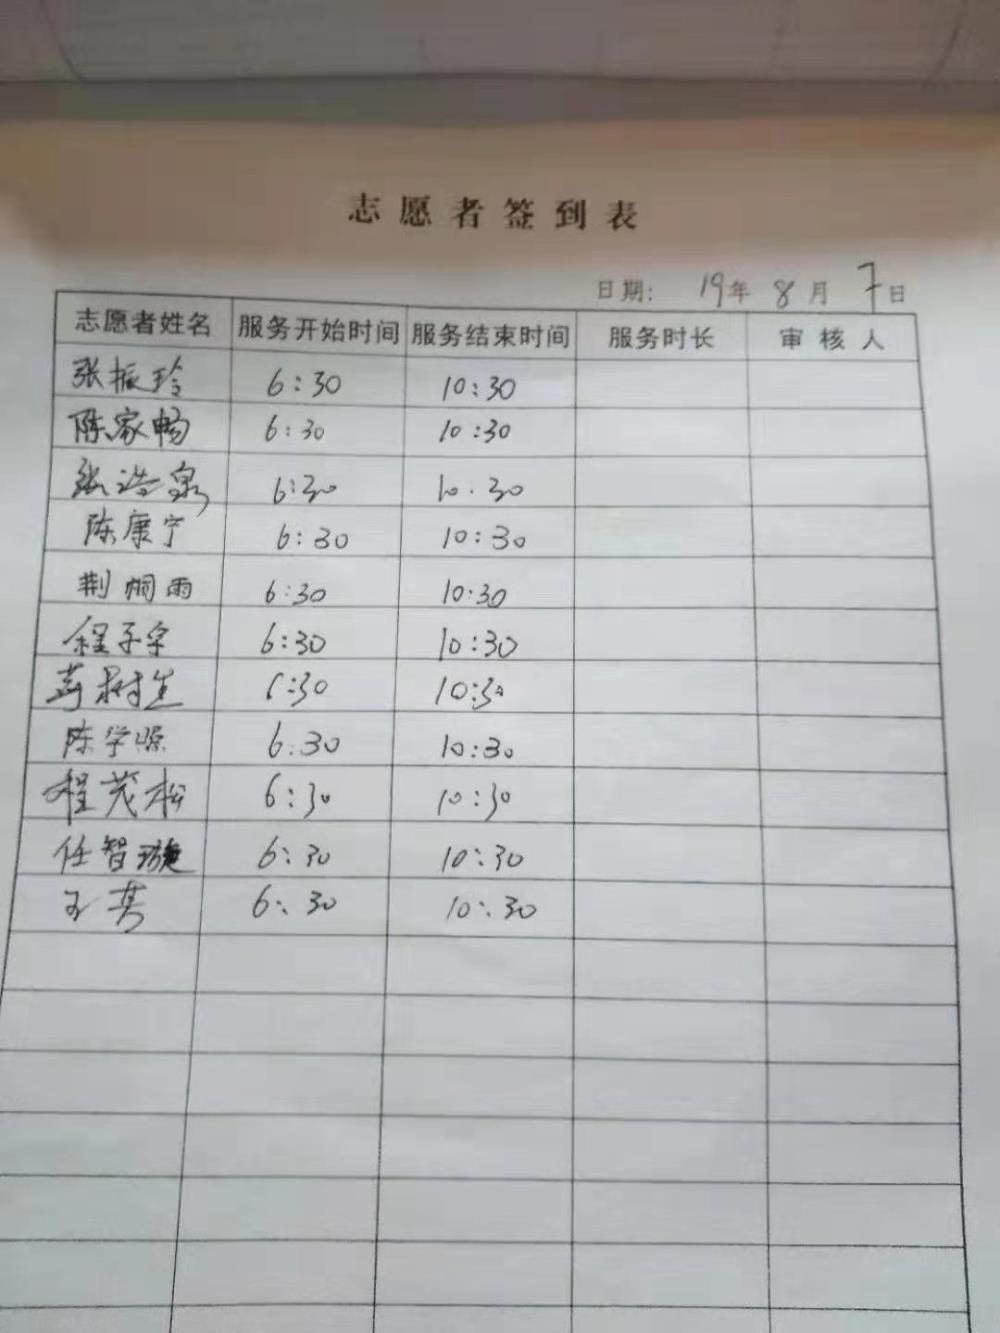 志愿者签到表
日期: 19年 8月 7日
志愿者姓名 服务开始时间 服务结束时间 服务时长 审核人
张振玲 6:30 10:30
陈家畅 6:30 10:30
张浩泉 6:30 10:30
陈康宁 6:30 10:30
荆桐雨 6:30 10:30
程子宗 6:30 10:30
树生 6:30 10:30
陈学照 6:30 10:30
程茂松 6:30 10:30
任智璇 6:30 10:30
王 6:30 10:30